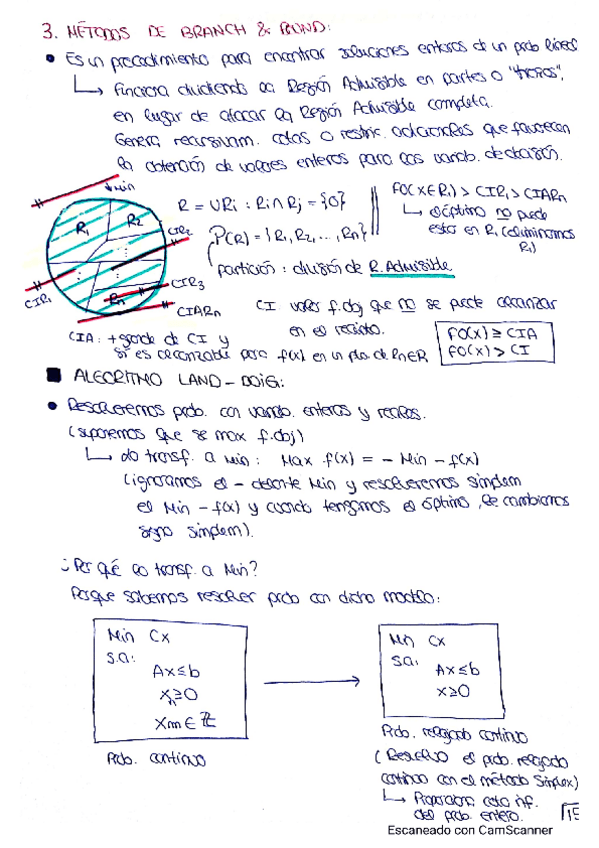 3. MÉTODOS DE BRANCH & BOUND:
• Es un procedimiento para encontrar soluciones enteras de un prob lineal
↳ Funciona dividiendo la Región Admisible en partes o "trozos",
en lugar de atacar la Región Admisible completa.
Genera recursivam. cotas o restric. adicionales que favorecen
la obtención de valores enteros para las variab. de decisión.
min
R1 R2
CIR2
CIR1
CIR3
Rn
CIARn
R = URi : Ri∩Rj = {0}
P(R) = {R1, R2, ..., Rn}
partición : división de R. Admisible
FO(X∈R1) > CIR1 > CIARn
↳ el óptimo no puede
estar en R1 (eliminamos
R1)
CI valor f.obj que no se puede alcanzar
en el recinto.
CIA : + grande de CI y
si es alcanzable para f(x) en un pto de Rn∈R
FO(X) ≥ CIA
FO(X) > CI
■ ALGORITMO LAND-DOIG:
• Resolveremos prob. con variab. enteras y reales.
(suponemos que se max f.obj)
↳ lo transf. a Min : Max f(x) = - Min - f(x)
(ignoramos el - delante Min y resolveremos simplem
el Min - f(x) y cuando tengamos el óptimo, le cambiamos
signo simplem).
¿Por qué lo transf. a Min?
Porque sabemos resolver prob con dicho modelo:
Min Cx
s.a:
Ax≤b
xn≥0
Xm∈ℤ
Prob. continuo
Min Cx
s.a:
Ax≤b
x≥0
Prob. relajado continuo
(Resuelvo el prob. relajado
continuo con el método Simplex)
↳ Proporciona cota inf.
del prob. entero.
15
Escaneado con CamScanner